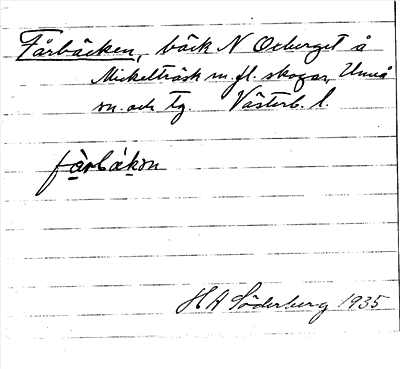 Fårbäcken, bäck N Oxberget å
Mickelträsk m.fl. skogar, Umeå
sn. och tg. Västerb. l.
fàrbákon
HA Söderberg 1935